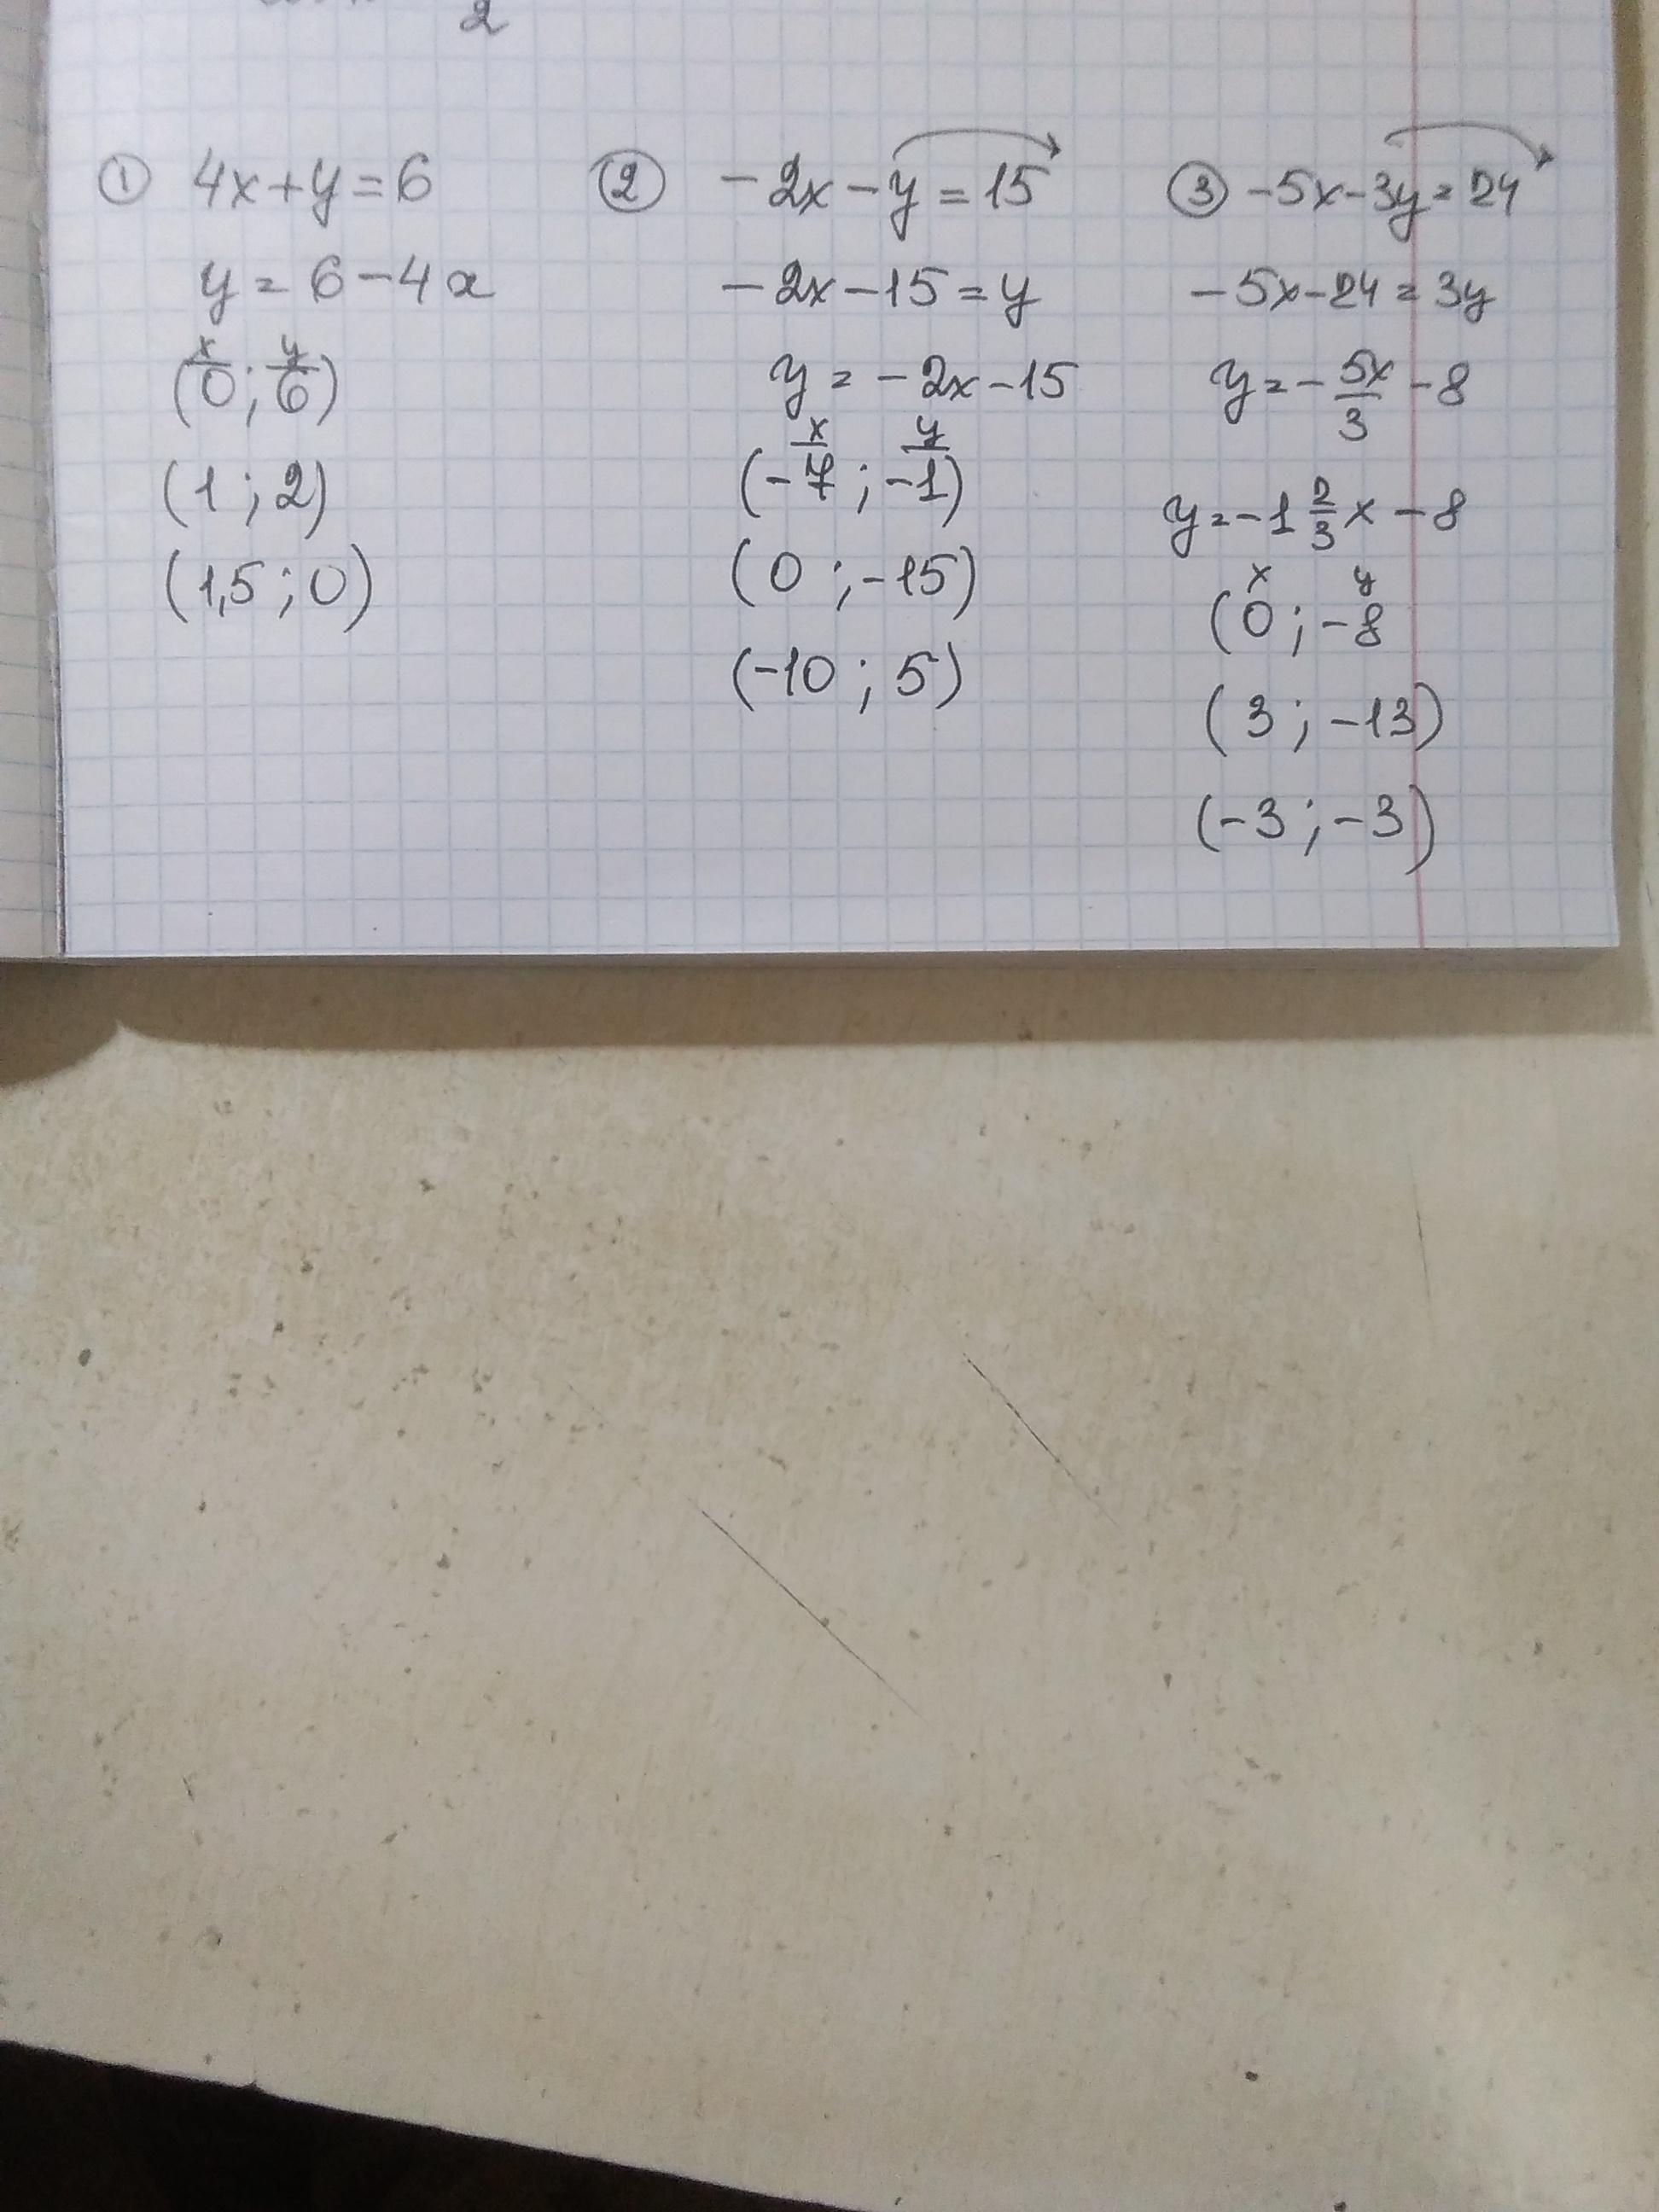 2
① 4x+y=6
y=6-4x
x y
(0;6)
(1;2)
(1,5;0)
② -2x-y=15
-2x-15=y
y=-2x-15
x y
(-7;-1)
(0;-15)
(-10;5)
③ -5x-3y=24
-5x-24=3y
y=-5x/3-8
y=-1 2/3 x-8
x y
(0;-8
(3;-13)
(-3;-3)